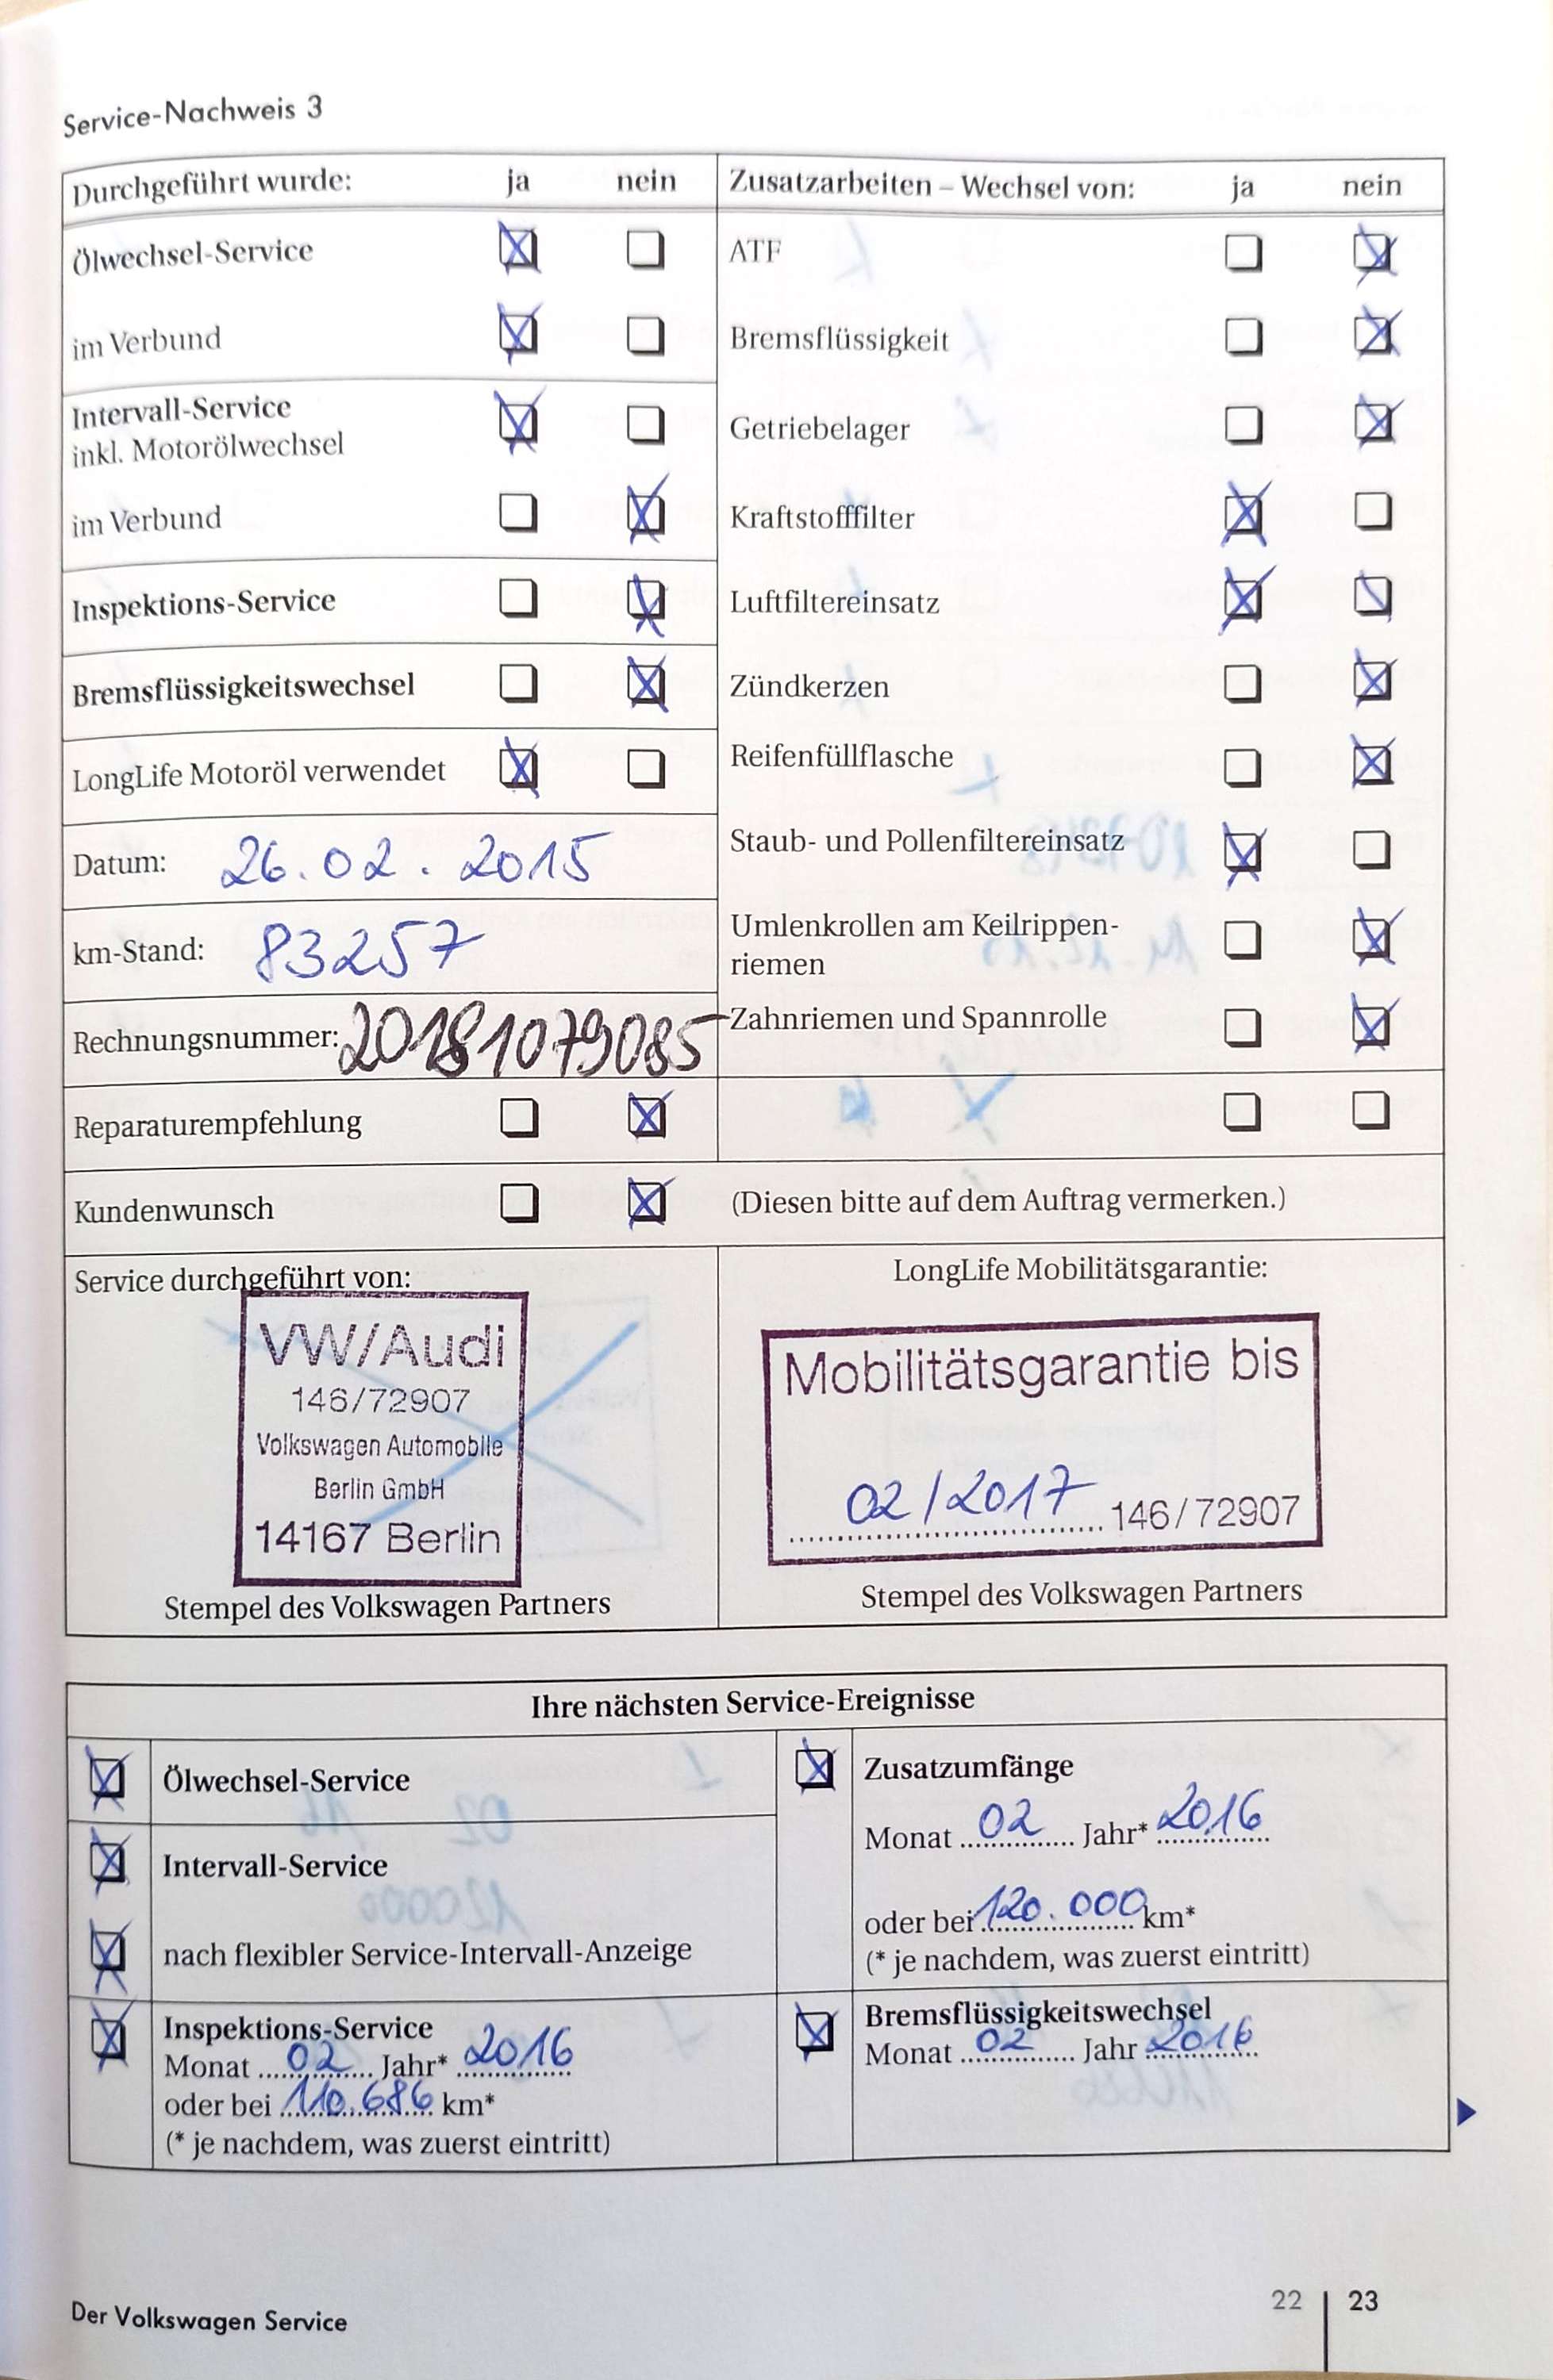 Service-Nachweis 3
Durchgeführt wurde: ja nein
Ölwechsel-Service
im Verbund
Intervall-Service
inkl. Motorölwechsel
im Verbund
Inspektions-Service
Bremsflüssigkeitswechsel
LongLife Motoröl verwendet
Datum: 26.02.2015
km-Stand: 83257
Rechnungsnummer: 20181079085
Reparaturempfehlung
Zusatzarbeiten – Wechsel von: ja nein
ATF
Bremsflüssigkeit
Getriebelager
Kraftstofffilter
Luftfiltereinsatz
Zündkerzen
Reifenfüllflasche
Staub- und Pollenfiltereinsatz
Umlenkrollen am Keilrippen-
riemen
Zahnriemen und Spannrolle
Kundenwunsch (Diesen bitte auf dem Auftrag vermerken.)
Service durchgeführt von:
VW/Audi
146/72907
Volkswagen Automobile
Berlin GmbH
14167 Berlin
Stempel des Volkswagen Partners
LongLife Mobilitätsgarantie:
Mobilitätsgarantie bis
02/2017 146/72907
Stempel des Volkswagen Partners
Ihre nächsten Service-Ereignisse
Ölwechsel-Service
Intervall-Service
nach flexibler Service-Intervall-Anzeige
Inspektions-Service
Monat 02 Jahr* 2016
oder bei 110.686 km*
(* je nachdem, was zuerst eintritt)
Zusatzumfänge
Monat 02 Jahr* 2016
oder bei 120.000 km*
(* je nachdem, was zuerst eintritt)
Bremsflüssigkeitswechsel
Monat 02 Jahr 2016
Der Volkswagen Service
22 | 23